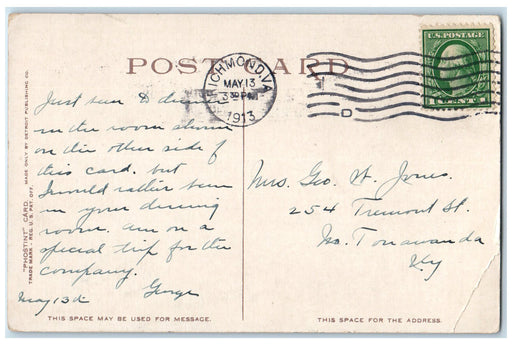 POST CARD
RICHMOND, VA.
MAY 13
3 30 PM
1913
D
U.S. POSTAGE
1 CENT 1
"PHOSTINT" CARD.
TRADE MARK - REG. U.S. PAT. OFF.
MADE ONLY BY DETROIT PUBLISHING CO.
Just seen & dined
in the room shown
on the other side of
this card. but
I would rather been
in your dining
room. am on a
special trip for the
company.
George
May 13th
Mrs. Geo. W. Jones.
254 Tremont St.
No. Tonawanda
NY
THIS SPACE MAY BE USED FOR MESSAGE.
THIS SPACE FOR THE ADDRESS.